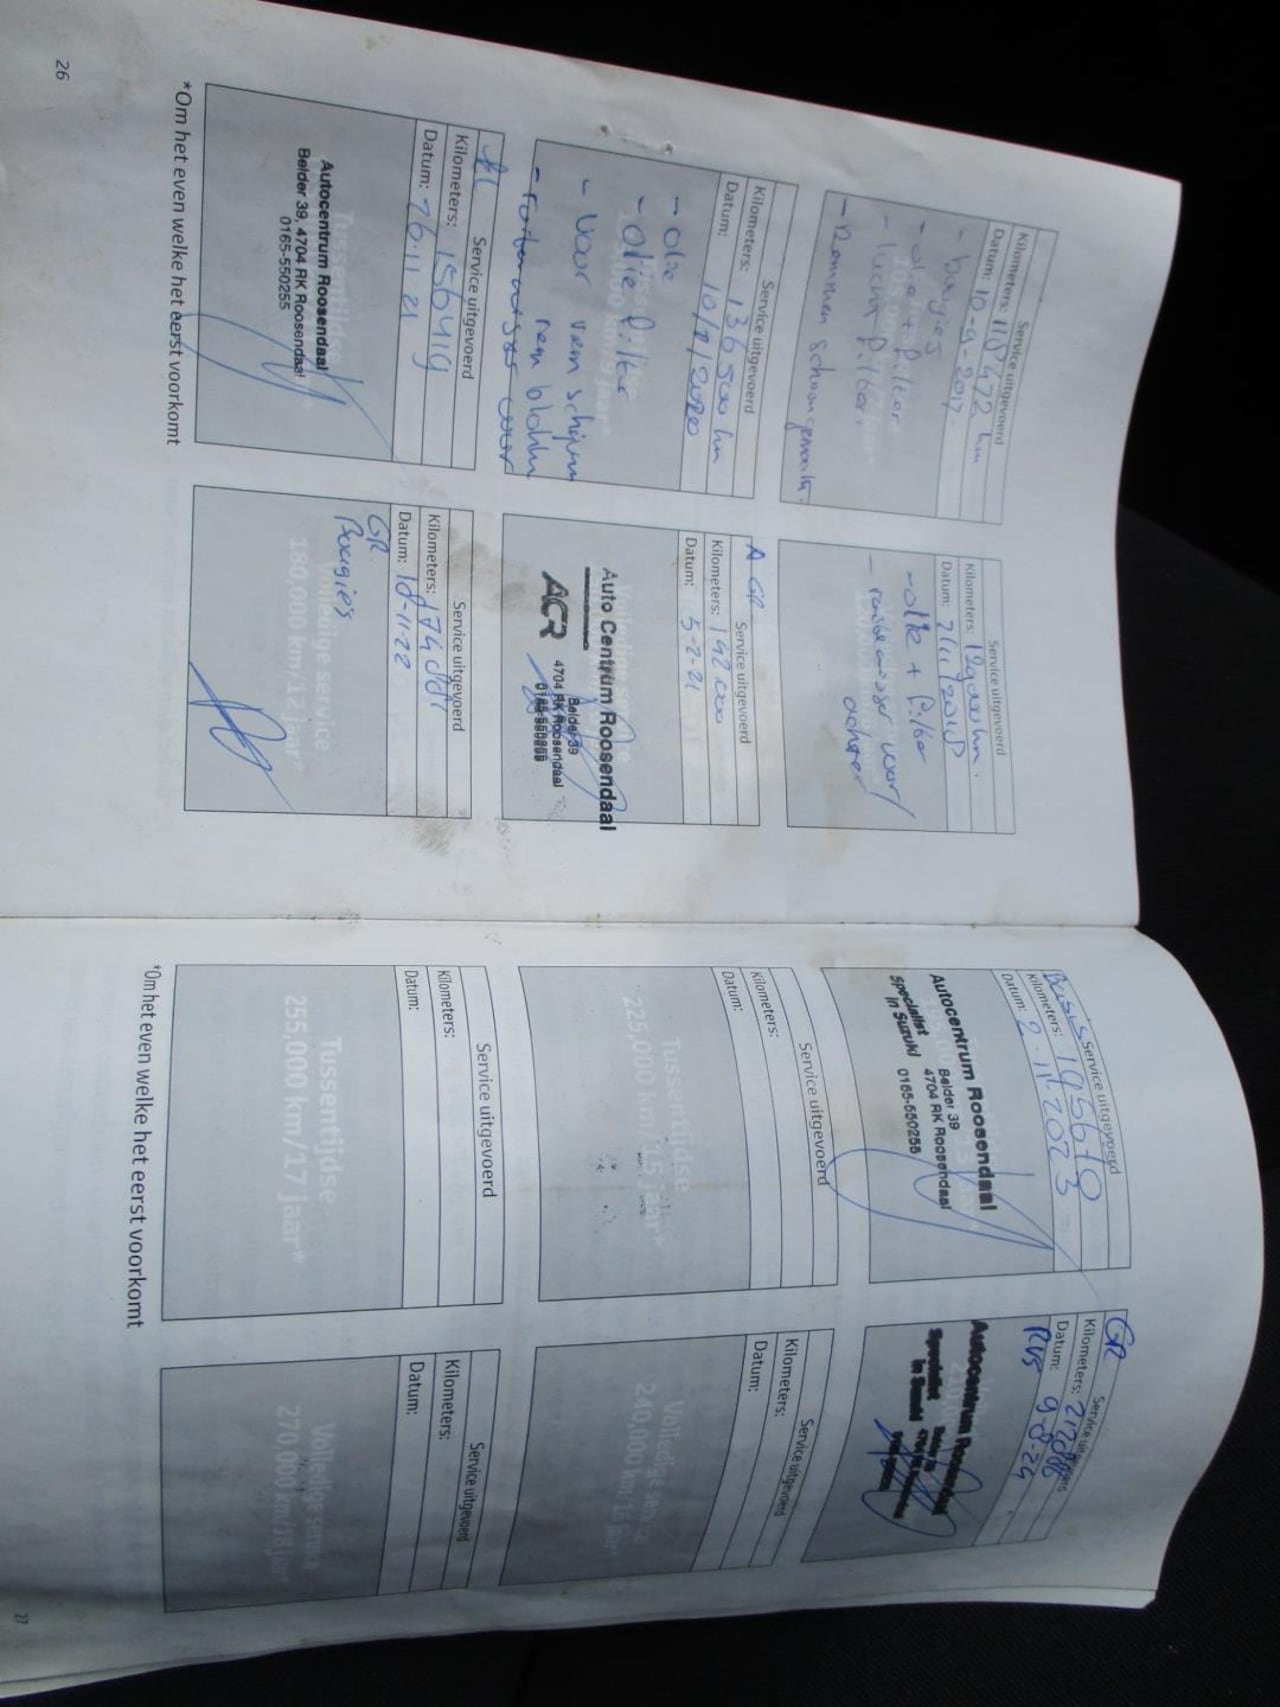 Service uitgevoerd
Kilometers: 118472 km
Datum: 10-9-2017
- bougies
- olie + filter
- lucht filter
- Remmen schoongemaakt.
Service uitgevoerd
Kilometers: 129000 km.
Datum: 2/11/2018
- olie + filter
- ruitenwisser voor/
achter
Service uitgevoerd
Kilometers: 136500 km
Datum: 10/1/2020
- olie
- olie filter
- Voor rem schijven
rem blokken
- ruitenwisser voor
A GR Service uitgevoerd
Kilometers: 142.000
Datum: 5-2-21
Auto Centrum Roosendaal
ACR
Belder 39
4704 RK Roosendaal
0165-550255
Service uitgevoerd
Kilometers: 156419
Datum: 26.11.21
Tussentijdse
Autocentrum Roosendaal
Belder 39, 4704 RK Roosendaal
0165-550255
Service uitgevoerd
Kilometers:
Datum: 18-11-22
GR
Bougies
Volledige service
180,000 km/12 jaar*
*Om het even welke het eerst voorkomt
26
Basis Service uitgevoerd
Kilometers: 195610
Datum: 2.11.2023
Autocentrum Roosendaal
Specialist
in Suzuki
Belder 39
4704 RK Roosendaal
0165-550255
GR Service uitgevoerd
Kilometers:
Datum: 9-8-24
RVS
Autocentrum Roosendaal
Specialist
in Suzuki
Service uitgevoerd
Kilometers:
Datum:
Tussentijdse
225,000 km/15 jaar*
Service uitgevoerd
Kilometers:
Datum:
Volledige service
240,000 km/16 jaar*
Service uitgevoerd
Kilometers:
Datum:
Tussentijdse
255,000 km/17 jaar*
Service uitgevoerd
Kilometers:
Datum:
Volledige service
270,000 km/18 jaar*
*Om het even welke het eerst voorkomt
27